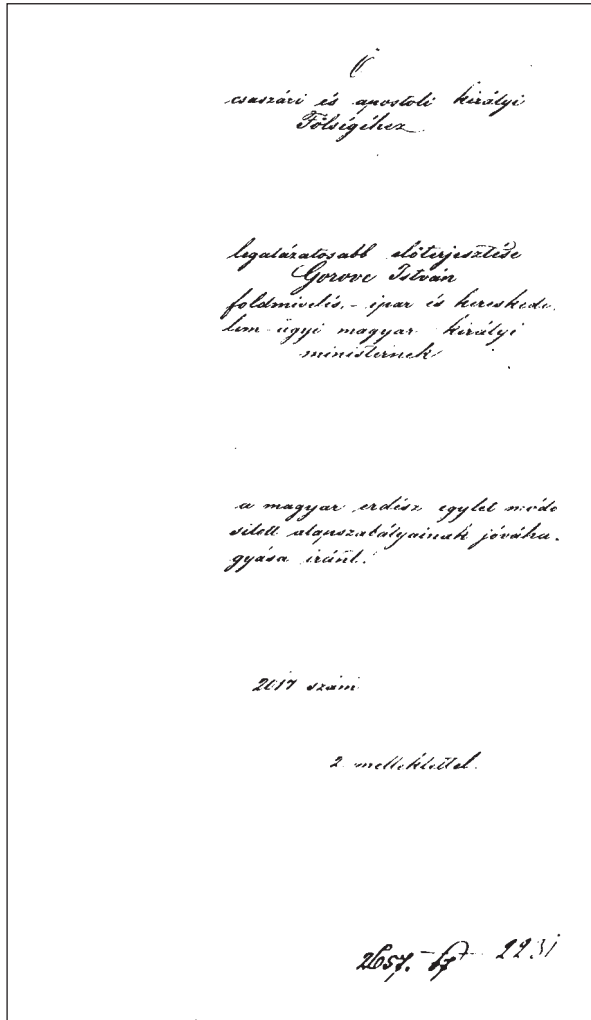 Ő
császári és apostoli királyi
Fölségéhez
legalázatosabb előterjesztése
Gorove István
földmivelés,- ipar és kereskede,
lem-ügyi magyar királyi
ministernek
a magyar erdész egylet módo
sitott alapszabályainak jóváha,
gyása iránt.
2017 szám
2 melléklettel.
2657.-67 2231